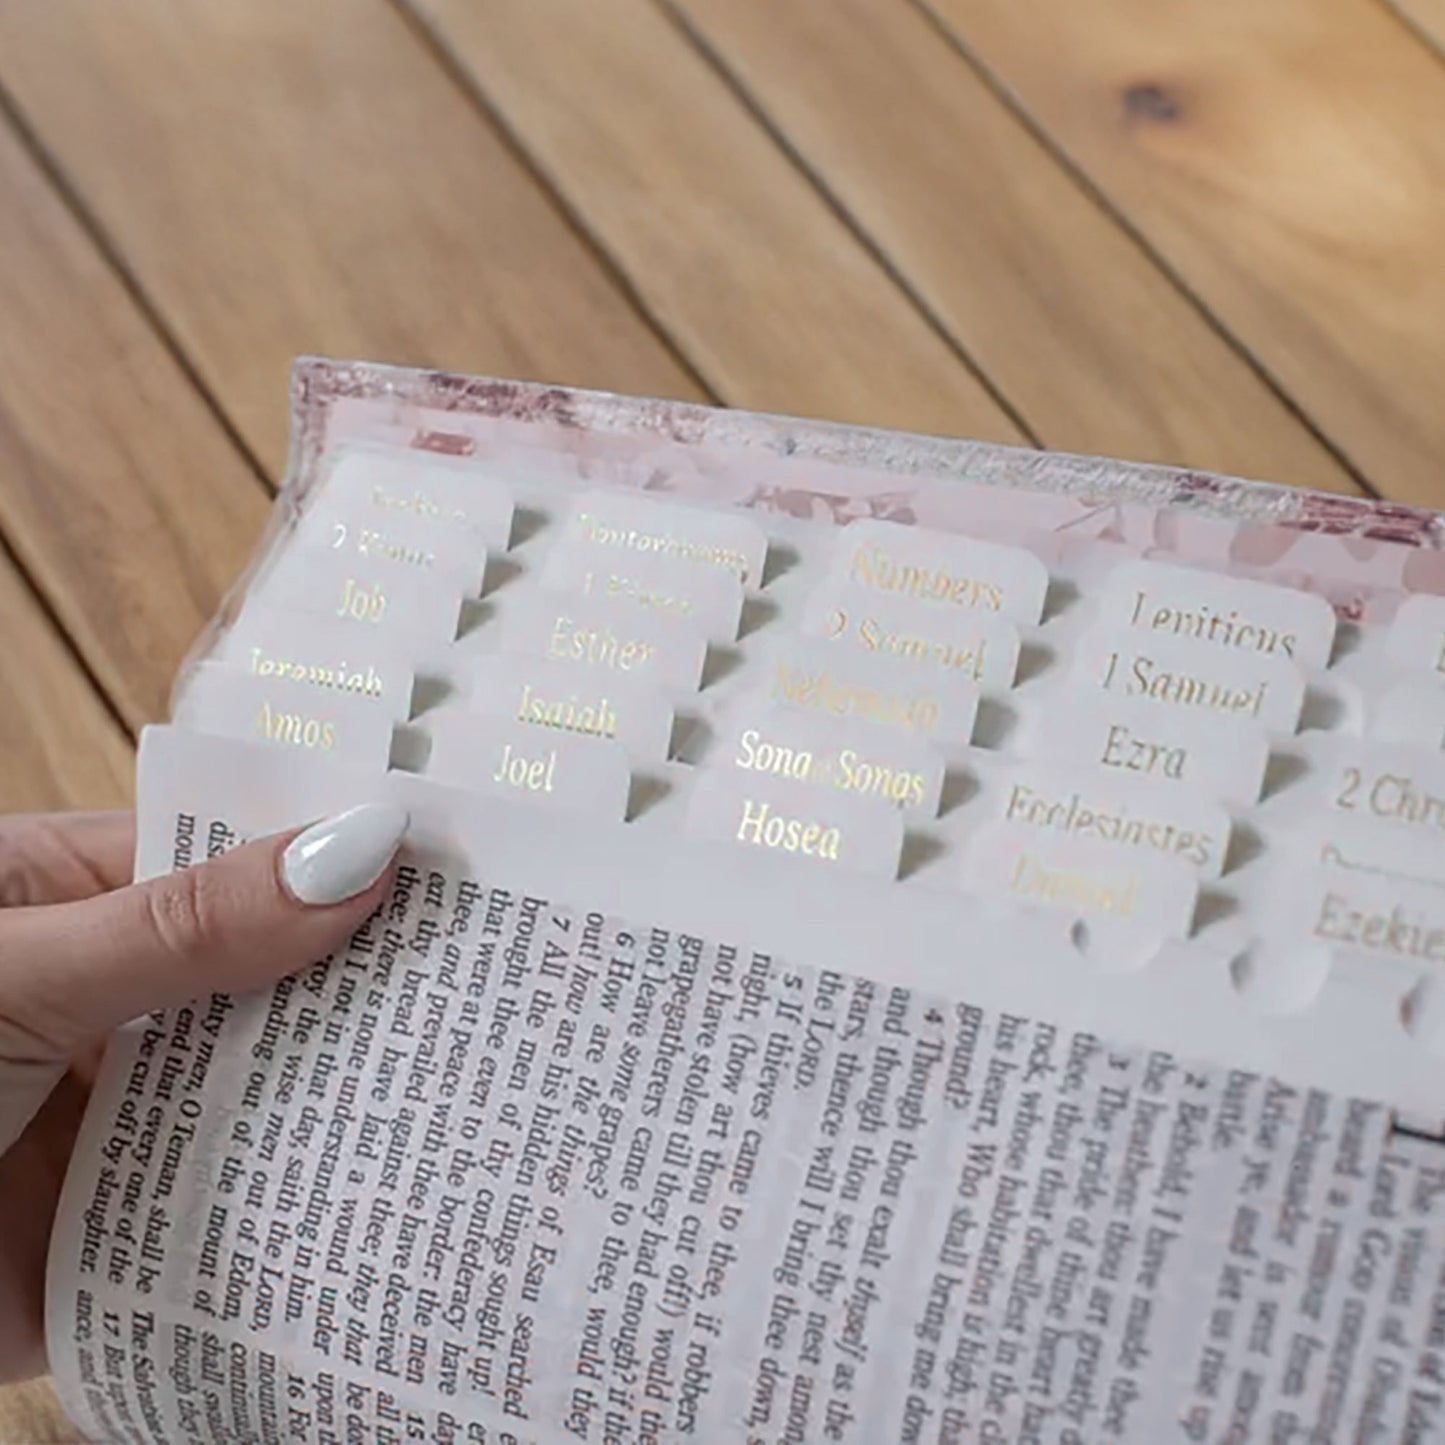 Deuteronomy Numbers Leviticus
2 Kings 1 Kings 2 Samuel 1 Samuel
Job Esther Nehemiah Ezra 2 Chr
Jeremiah Isaiah Song of Songs Ecclesiastes
Amos Joel Hosea Daniel Ezekie
The vision of Obad
Lord GOD concerning
heard a rumour from
ambassador is sent among
Arise ye, and let us rise up
battle.
2 Behold, I have made thee
the heathen: thou art greatly d
3 The pride of thine heart hat
thee, thou that dwellest in the cl
rock, whose habitation is high; tha
his heart, Who shall bring me dow
ground?
4 Though thou exalt thyself as the
and though thou set thy nest among
stars, thence will I bring thee down, s
the LORD.
5 If thieves came to thee, if robbers
night, (how art thou cut off!) would the
not have stolen till they had enough? if the
grapegatherers came to thee, would they
not leave some grapes?
6 How are the things of Esau searched
out! how are his hidden things sought up!
7 All the men of thy confederacy have
brought thee even to the border: the men
that were at peace with thee have deceived
thee, and prevailed against thee; they that
eat thy bread have laid a wound under
thee: there is none understanding in him.
all I not in that day, saith the LORD,
roy the wise men out of Edom,
tanding out of the mount of
thy men, O Teman, shall be
end that every one of the
y be cut off by slaughter.
15
16 For
upon
mountain
continually
shall
though they
17 But upon
ance, and